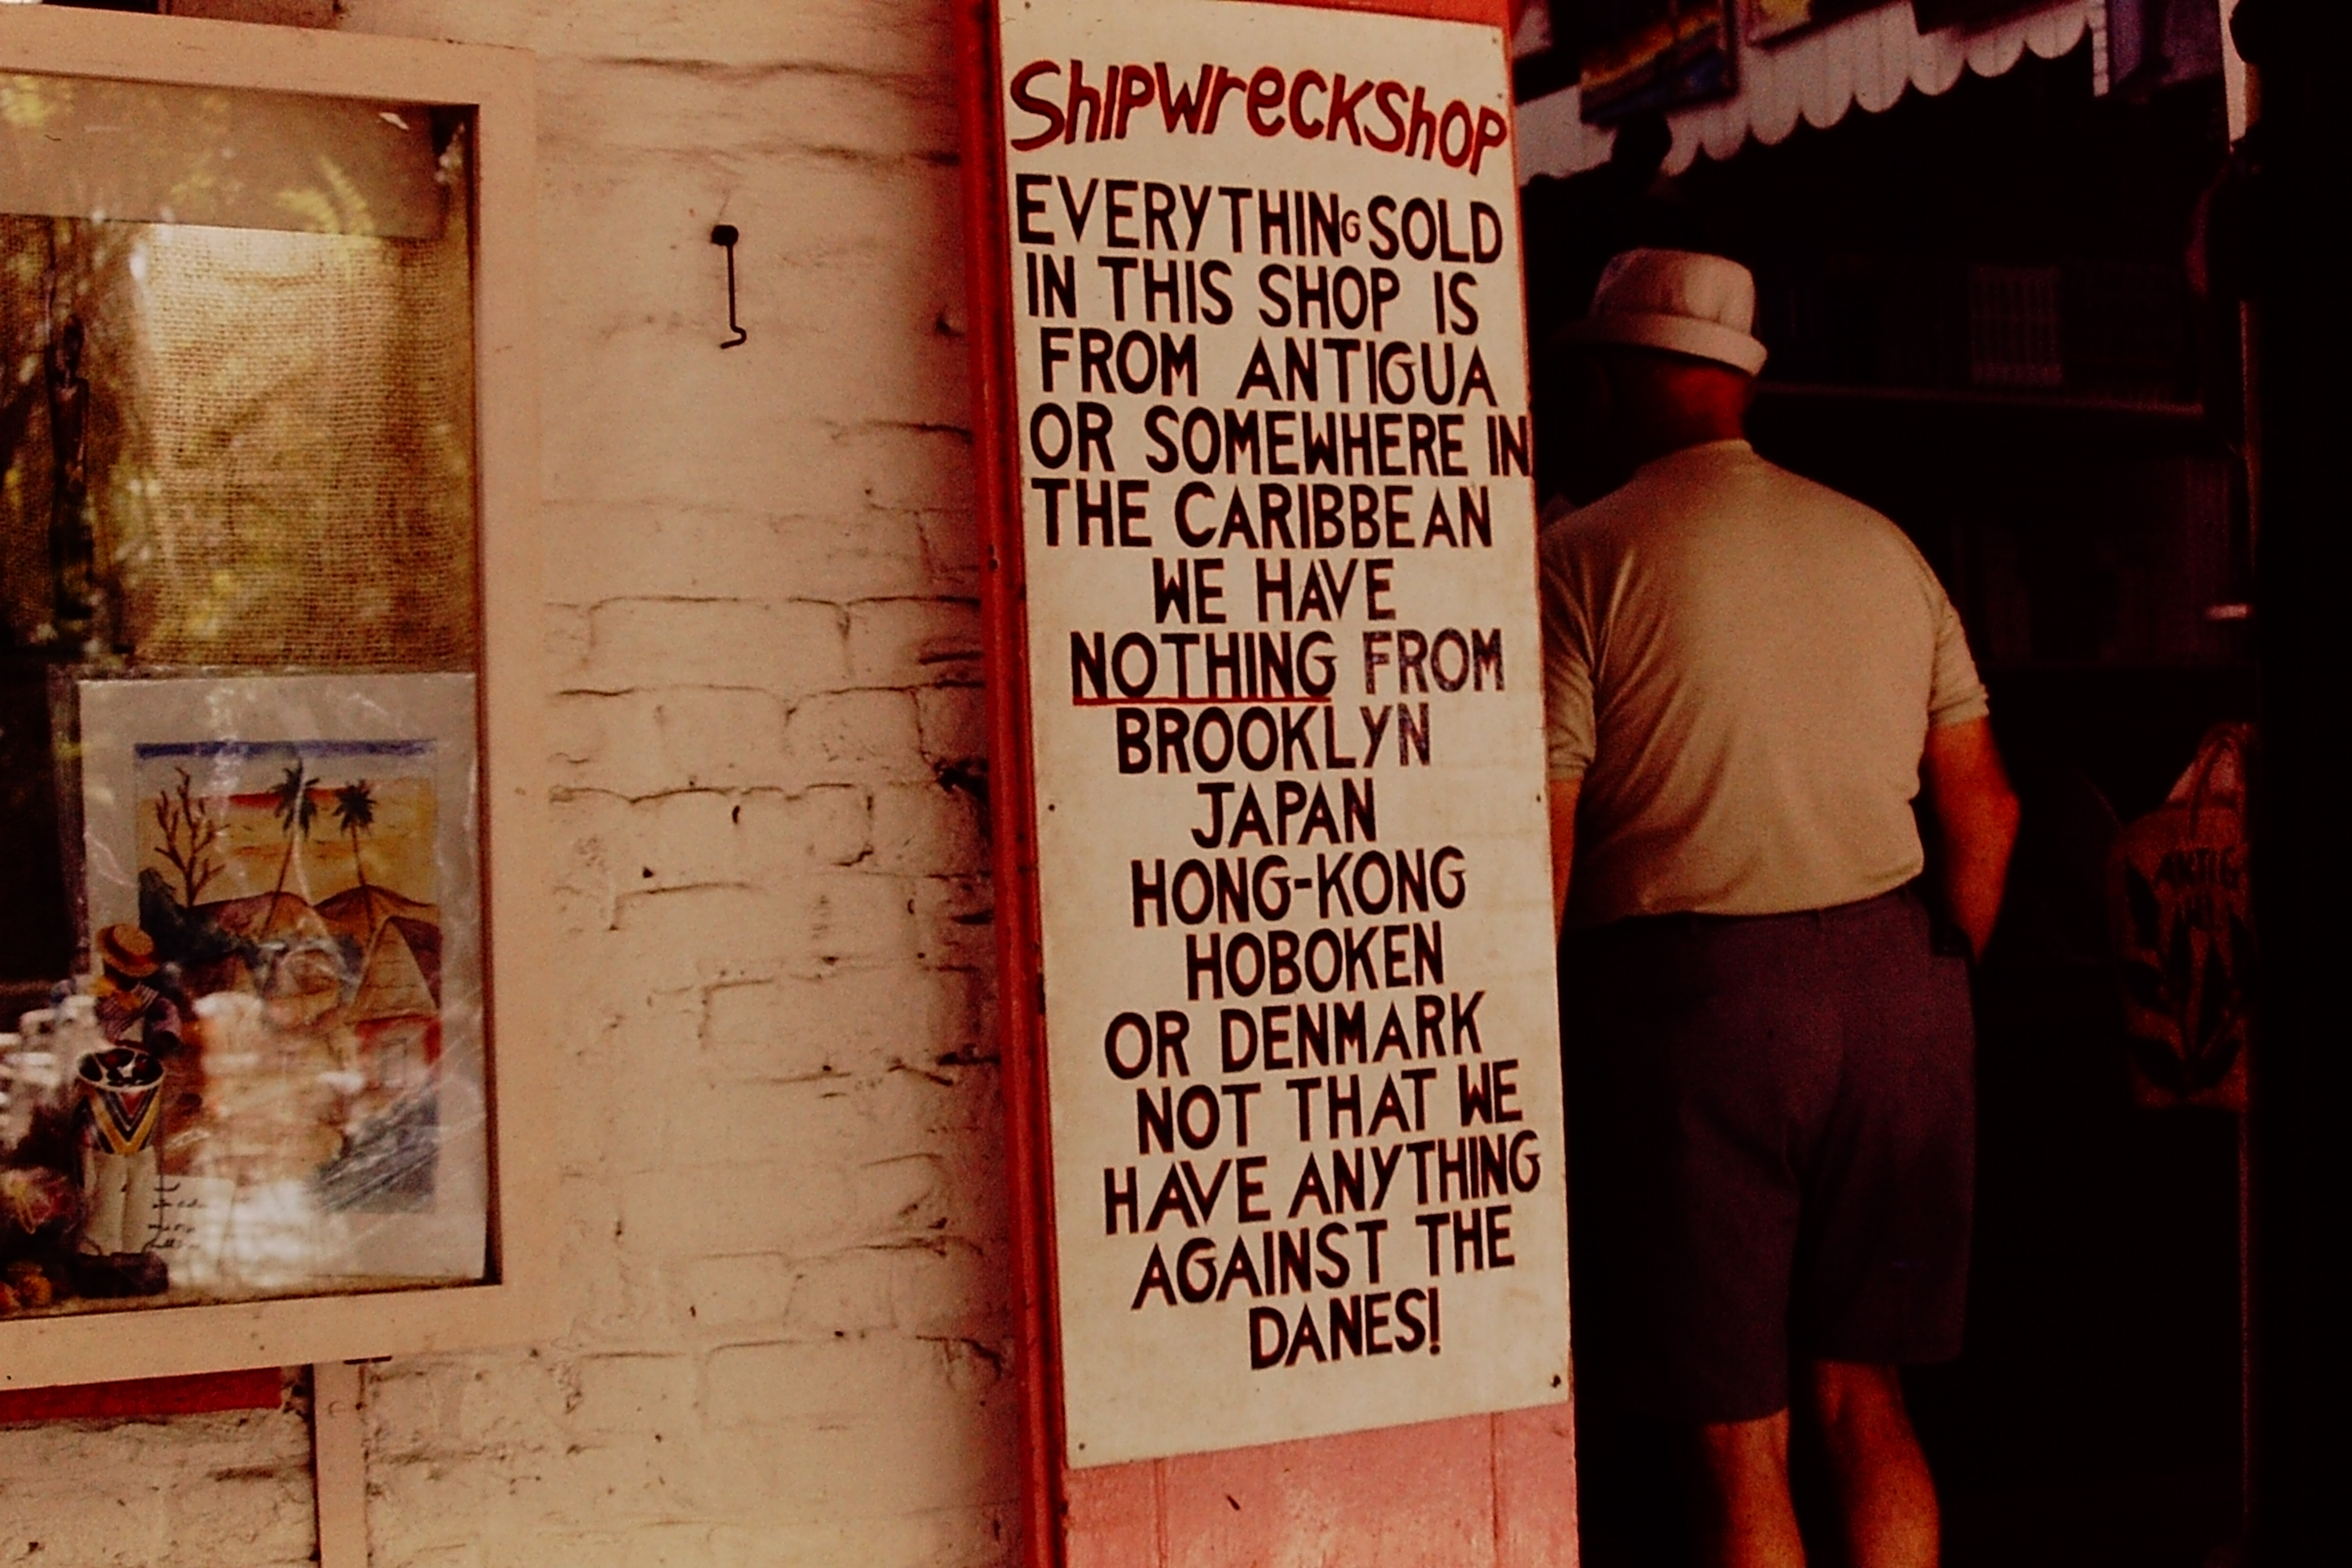 ShipwreckShop
EVERYTHING SOLD
IN THIS SHOP IS
FROM ANTIGUA
OR SOMEWHERE IN
THE CARIBBEAN
WE HAVE
NOTHING FROM
BROOKLYN
JAPAN
HONG-KONG
HOBOKEN
OR DENMARK
NOT THAT WE
HAVE ANYTHING
AGAINST THE
DANES!